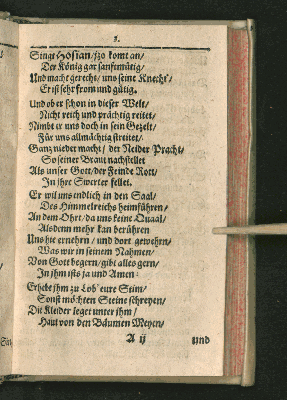 3.
Singt Hosian/ jzo komt an/
Der König gar sanftmütig/
Und macht gerecht/ uns seine Knecht/
Er ist sehr from und gütig.
Und ob er schon in dieser Welt/
Nicht reich und prächtig reitet/
Nimbt er uns doch in sein Gezelt/
Für uns allmächtig streitet/
Ganz nieder macht/ der Neider Pracht/
So seiner Braut nachstellet
Als unser Gott/ der Feinde Rott/
In ihre Swerter fellet.
Er wil uns endlich in den Saal/
Des Himmelreichs heimführen/
An dem Ohrt/ da uns keine Quaal/
Alsdenn mehr kan berühren
Uns hie ernehrn/ und dort gewehrn/
Was wir in seinem Nahmen/
Von Gott begern/ gibt alles gern/
In ihm ists ja und Amen:
Erhebt ihm zu Lob' eure Stim/
Sonst möchten Steine schreyen/
Die Kleider leget unter ihm/
Haut von den Bäumen Meyen/
A ij und